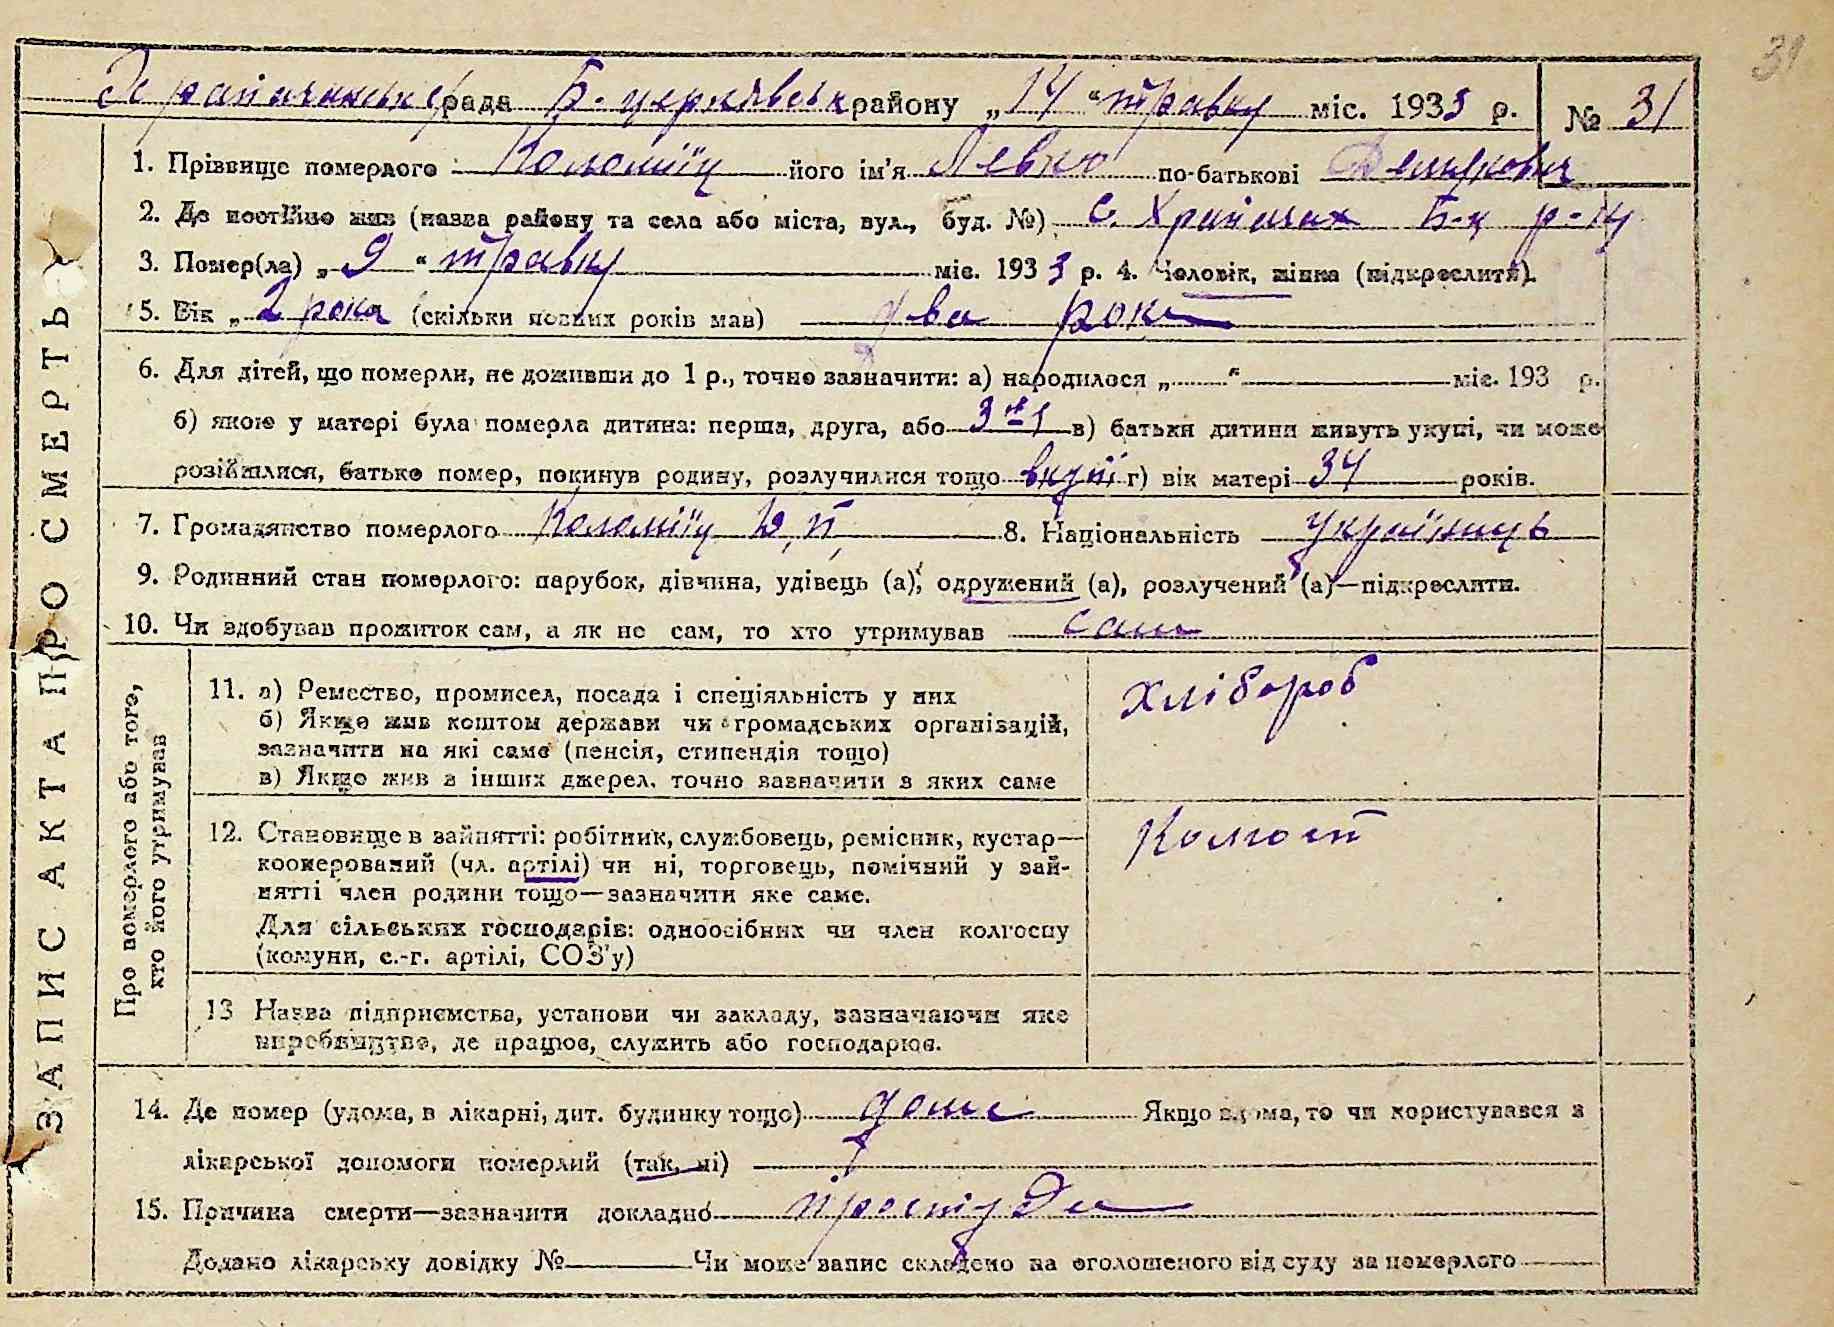 31
Храпачанська рада Б-церківськ району „14“ травня міс. 1933 р. № 31
ЗАПИС АКТА ПРО СМЕРТЬ
1. Прізвище померлого Коломієць його ім'я Левко по-батькові
2. Де постійно жив (назва району та села або міста, вул., буд. №) с. Храпачах Б-ц р-ну
3. Помер(ла) „9“ травня міс. 1933 р. 4. Чоловік, жінка (підкреслити).
5. Вік „2 роки (скільки повних років мав) два роки
6. Для дітей, що померли, не доживши до 1 р., точно зазначити: а) народилося „ “ міс. 193 р.
б) якою у матері була померла дитина: перша, друга, або 3-я в) батьки дитини живуть укупі, чи може
розійшлися, батько помер, покинув родину, розлучилися тощо вкупі г) вік матері 34 років.
7. Громадянство померлого Коломієць 8. Національність українець
9. Родинний стан померлого: парубок, дівчина, удівець (а), одружений (а), розлучений (а)—підкреслити.
10. Чи здобував прожиток сам, а як не сам, то хто утримував сам
Про померлого або того,
хто його утримував
11. а) Ремество, промисел, посада і спеціяльність у них хлібороб
б) Якщо жив коштом держави чи громадських організацій,
зазначити на які саме (пенсія, стипендія тощо)
в) Якщо жив з інших джерел, точно зазначити з яких саме
12. Становище в зайнятті: робітник, службовець, ремісник, кустар—
кооперований (чл. артілі) чи ні, торговець, помічний у зай-
нятті член родини тощо—зазначити яке саме.
Для сільських господарів: одноосібних чи член колгоспу
(комуни, с.-г. артілі, СОЗ'у)
13 Назва підприємства, установи чи закладу, зазначаючи яке
виробництво, де працює, служить або господарює.
14. Де помер (удома, в лікарні, дит. будинку тощо) дома Якщо вдома, то чи користувався з
лікарської допомоги померлий (так, ні)
15. Причина смерти—зазначити докладно простуда
Додано лікарську довідку № Чи може запис складено на оголошеного від суду за померлого